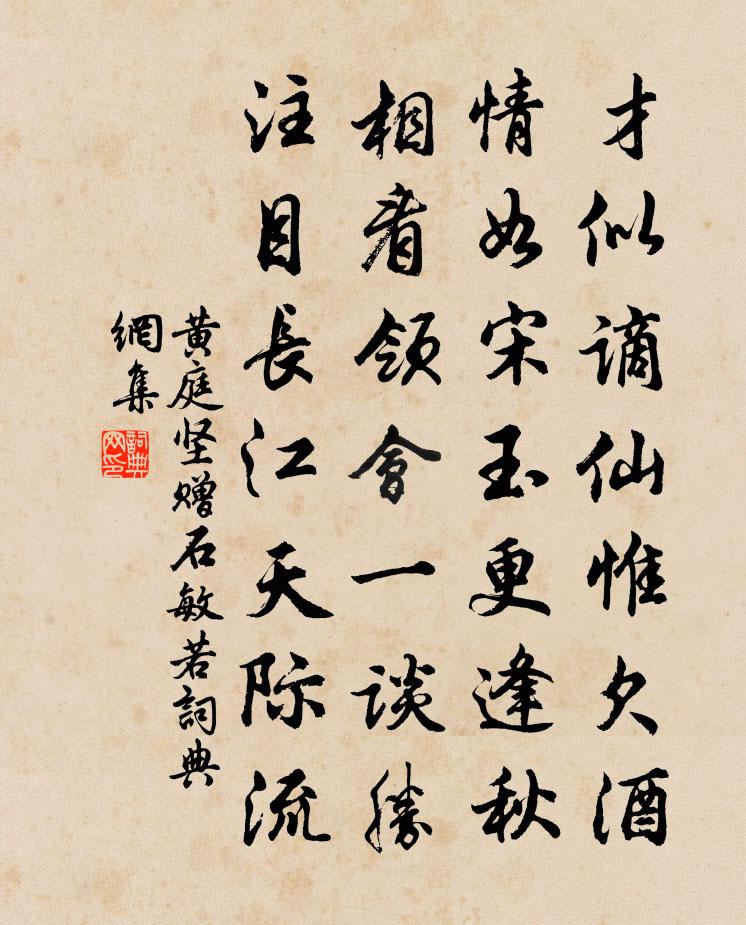 才似谪仙惟欠酒
情如宋玉更逢秋
相看领會一谈勝
注目長江天际流
黄庭坚赠石敏若詞典
網集
詞典
网印